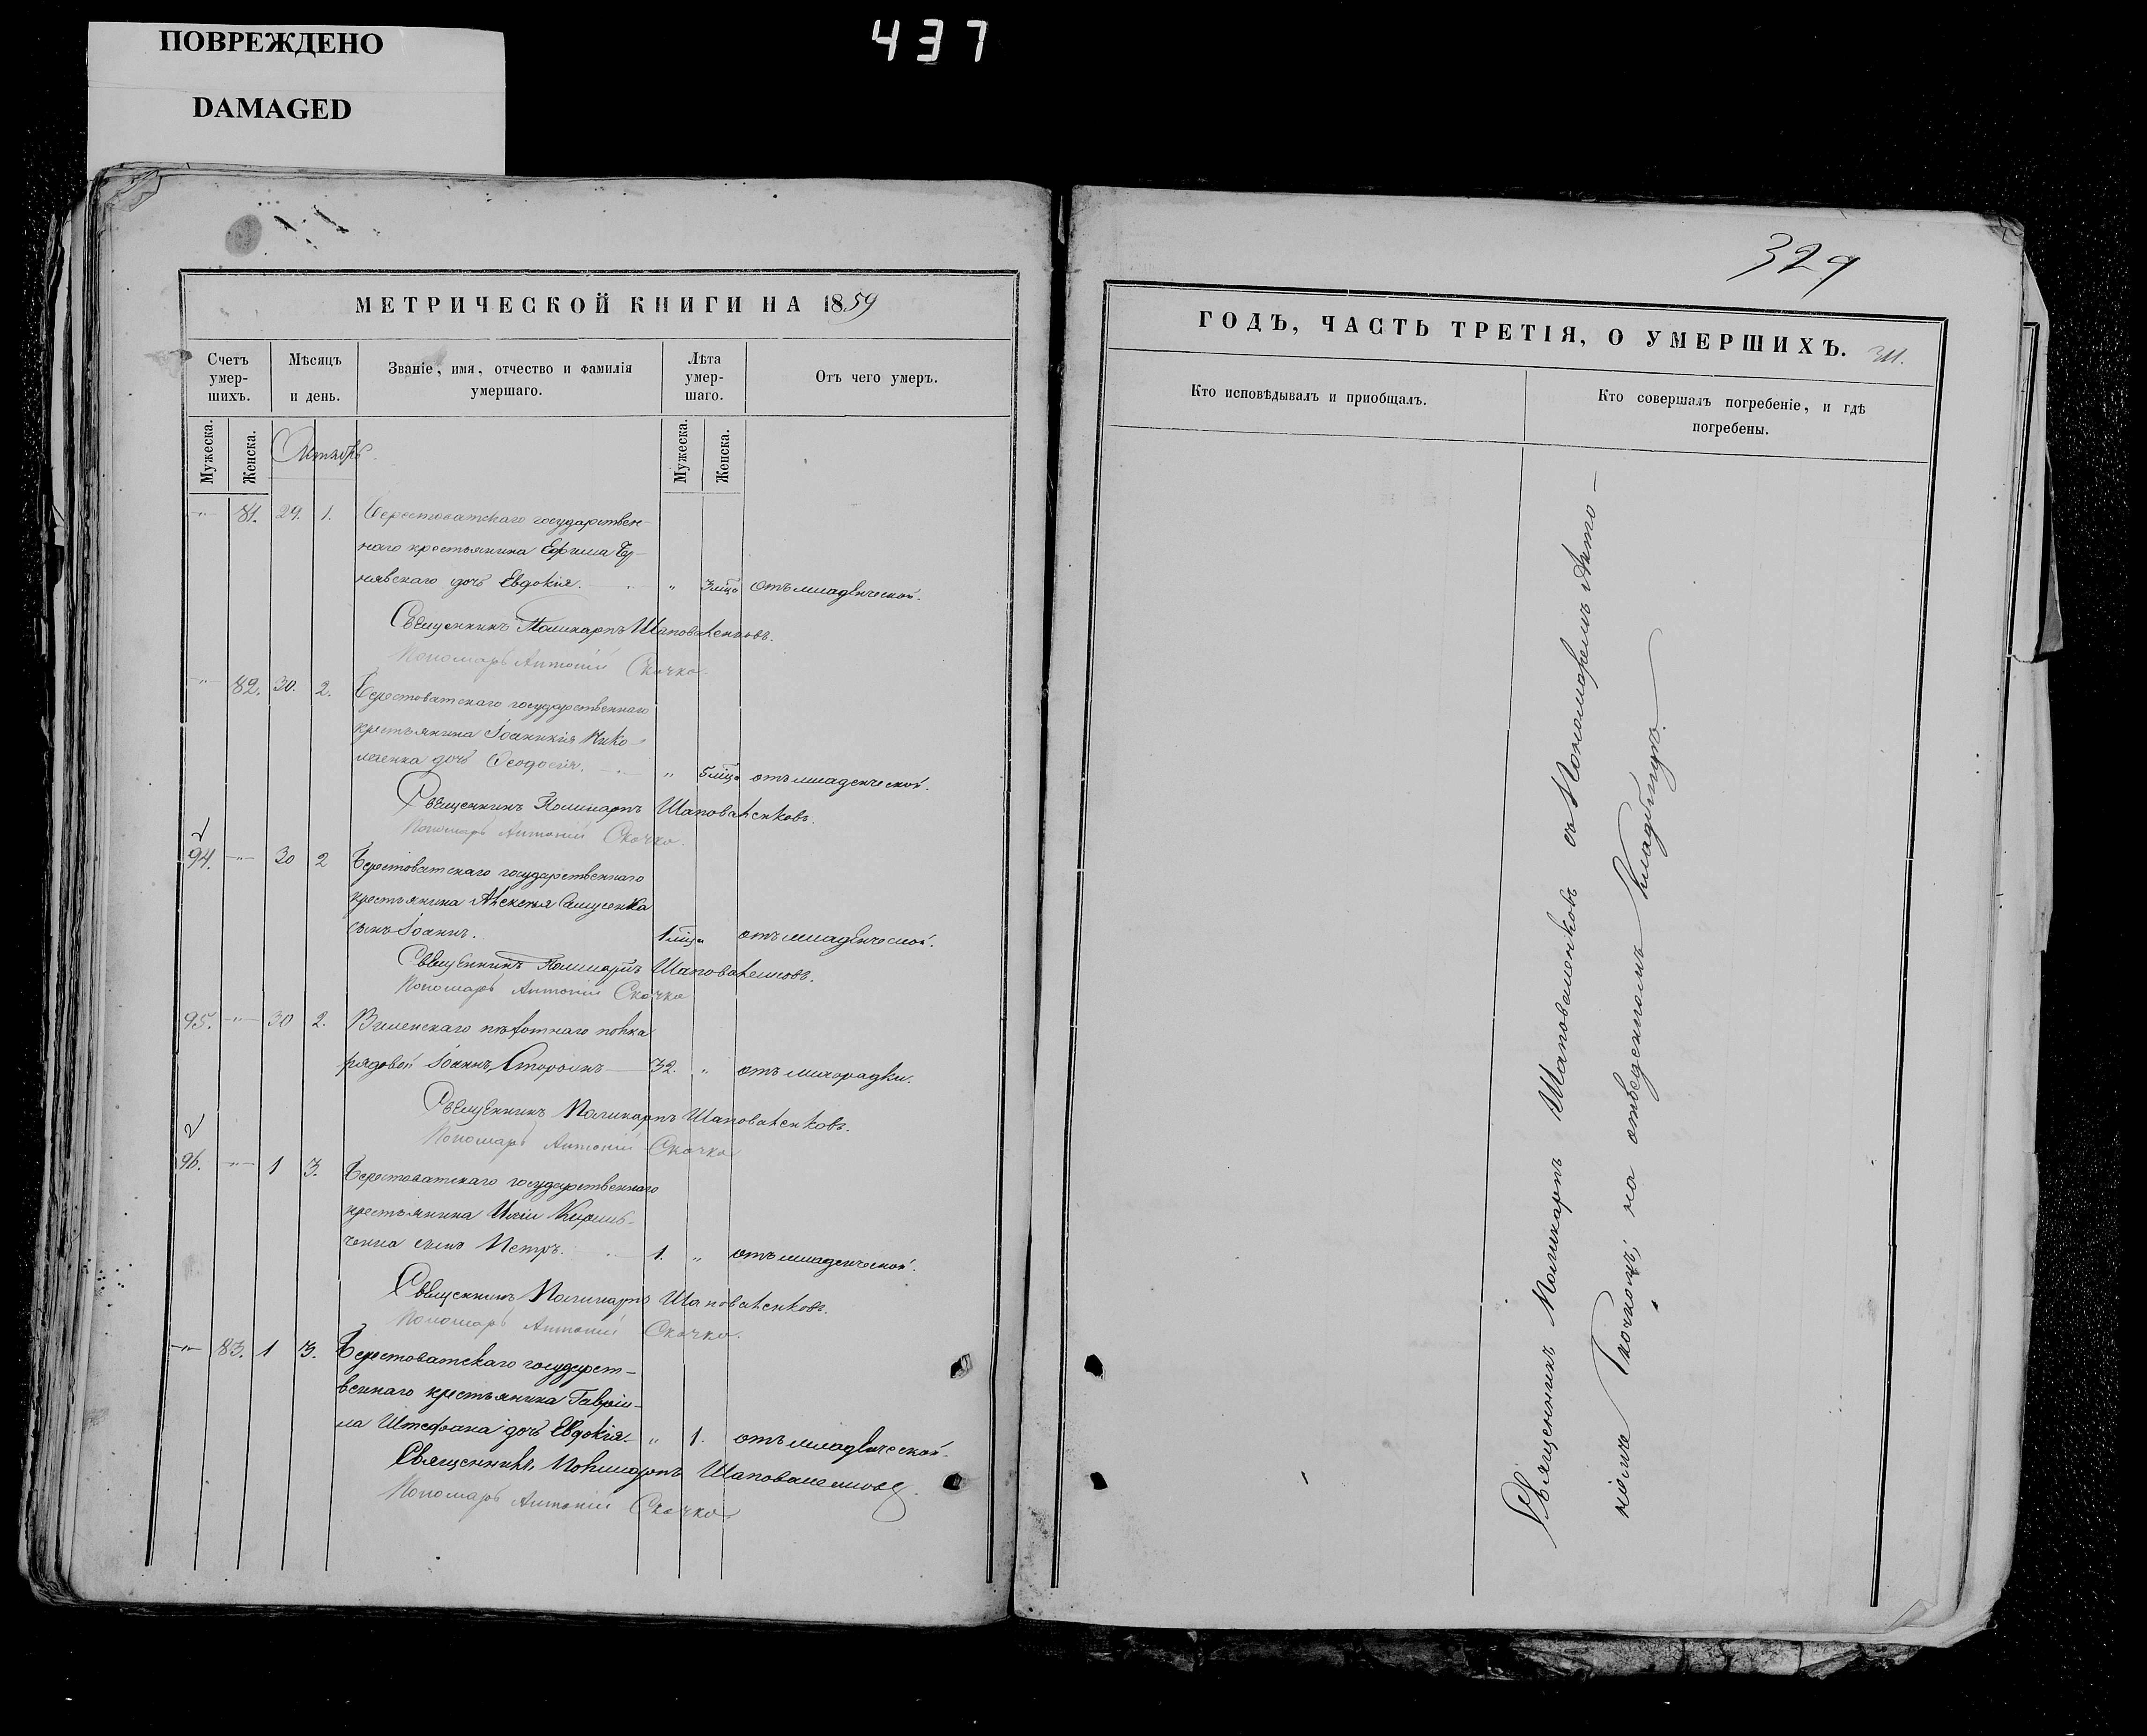 ПОВРЕЖДЕНО
DAMAGED
437
МЕТРИЧЕСКОЙ КНИГИ НА 1859
Счетъ умер-шихъ.
Мѣсяцъ и день.
Званіе, имя, отчество и фамилія умершаго.
Лѣта умер-шаго.
Отъ чего умеръ.
Мужеска. Женска. Октябрь. Мужеска. Женска.
-"- 81. 29. 1. Берестоватскаго государствен-
наго крестьянина Ефима
нявскаго дочь Евдокія. " 3 мѣца отъ младенческой.
Священникъ Поликарпъ Шаповаленковъ.
Пономарь Антоній Скочко.
-"- 82. 30. 2. Берестоватскаго государственнаго
крестьянина Іоанникія Нико-
ленка дочь Ѳеодосія. " 5 мѣца отъ младенческой.
Священникъ Поликарпъ Шаповаленковъ.
Пономарь Антоній Скочко.
2
94. -"- 30 2 Берестоватскаго государственнаго
крестьянина Алексѣя
сынъ Іоаннъ. 1 мѣца отъ младенческой.
Священникъ Поликарпъ Шаповаленковъ.
Пономарь Антоній Скочко
95. -"- 30 2. Виленскаго пѣхотнаго полка
рядовой Іоаннъ 32. " отъ лихорадки.
Священникъ Поликарпъ Шаповаленковъ.
Пономарь Антоній Скочко
2
96. -"- 1 3. Берестоватскаго государственнаго
крестьянина Иліи Кирил-
ченка сынъ Петръ. 1. " отъ младенческой.
Священникъ Поликарпъ Шаповаленковъ.
Пономарь Антоній Скочко.
-"- 83. 1 3. Берестоватскаго государст-
веннаго крестьянина Гаврiи-
ла Штефана дочь Евдокія. " 1. отъ младенческой.
Священникъ Поликарпъ Шаповаленковъ.
Пономарь Антоній Скочко
329
ГОДЪ, ЧАСТЬ ТРЕТІЯ, О УМЕРШИХЪ.
Кто исповѣдывалъ и приобщалъ.
Кто совершалъ погребеніе, и гдѣ погребены.
Священникъ Поликарпъ Шаповаленковъ съ Пономаремъ Анто-
ніемъ Скочкомъ; на отведенномъ кладбищѣ.